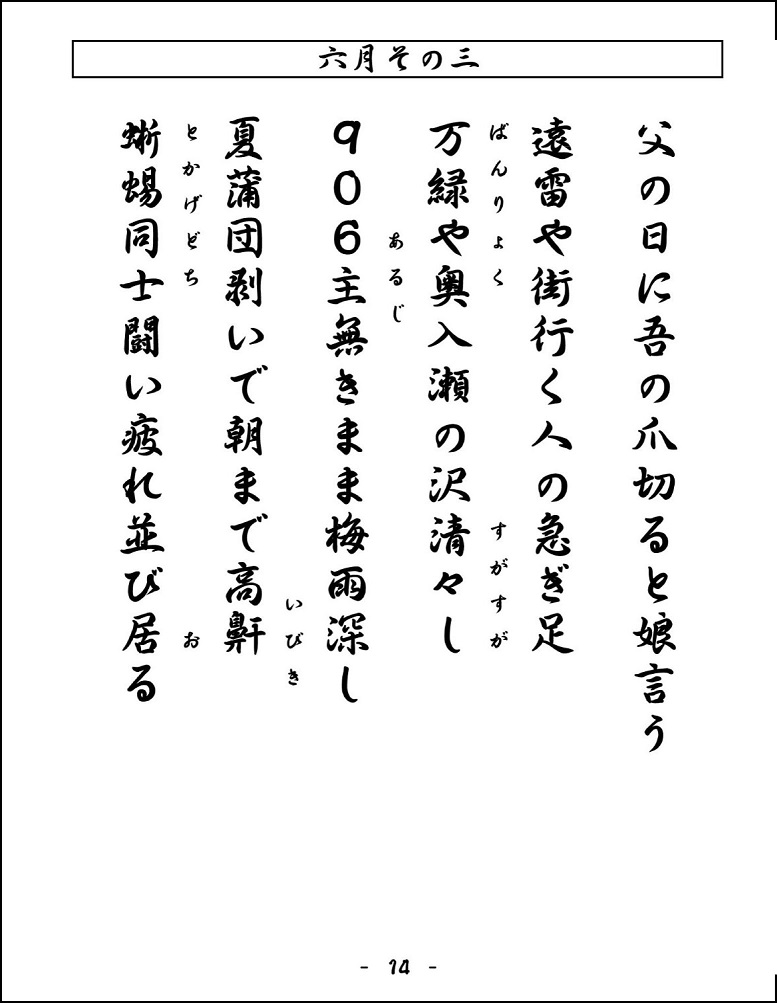 六月その三
父の日に吾の爪切ると娘言う
遠雷や街行く人の急ぎ足
ばんりょく すがすが
万緑や奥入瀬の沢清々し
あるじ
906主無きまま梅雨深し
いびき
夏蒲団剥いで朝まで高鼾
とかげどち お
蜥蜴同士闘い疲れ並び居る
- 14 -